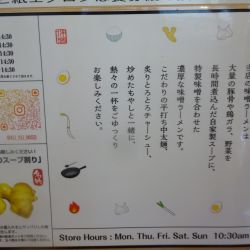 14:30
14:30
14:30
14:30
のスープ割り
当店の味噌ラーメンは
大量の豚骨や鶏ガラ、野菜を
長時間煮込んだ自家製スープに、
特製味噌を合わせた
濃厚な味噌ラーメンです。
こだわりの平打ち中太麺、
炙りとろとろチャーシュー、
炒めたもやしと一緒に、
熱々の一杯をごゆっくり
お楽しみください。
Store Hours : Mon. Thu. Fri. Sat. Sun 10:30am